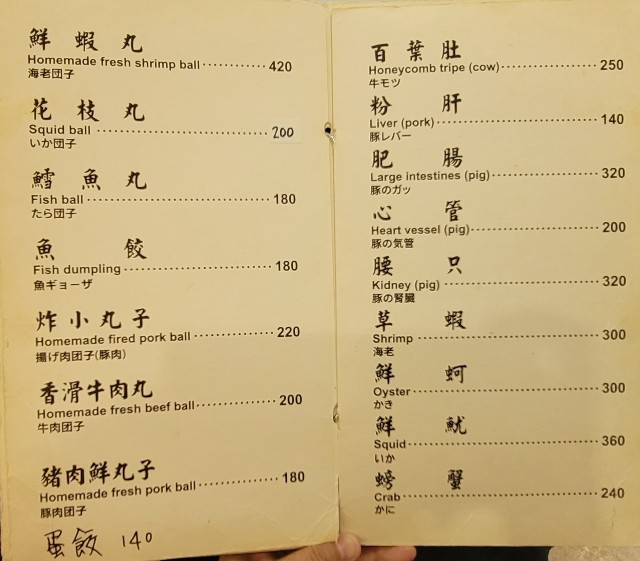 鮮蝦丸
Homemade fresh shrimp ball ············ 420
海老団子
花枝丸
Squid ball ············ 200
いか団子
鱈魚丸
Fish ball ············ 180
たら団子
魚餃
Fish dumpling ············ 180
魚ギョーザ
炸小丸子
Homemade fired pork ball ············ 220
揚げ肉団子(豚肉)
香滑牛肉丸
Homemade fresh beef ball ············ 200
牛肉団子
豬肉鮮丸子
Homemade fresh pork ball ············ 180
豚肉団子
蛋餃 140
百葉肚
Honeycomb tripe (cow) ············ 250
牛モツ
粉肝
Liver (pork) ············ 140
豚レバー
肥腸
Large intestines (pig) ············ 320
豚のガッ
心管
Heart vessel (pig) ············ 200
豚の気管
腰只
Kidney (pig) ············ 320
豚の腎臓
草蝦
Shrimp ············ 300
海老
鮮蚵
Oyster ············ 300
かき
鮮魷
Squid ············ 360
いか
螃蟹
Crab ············ 240
かに